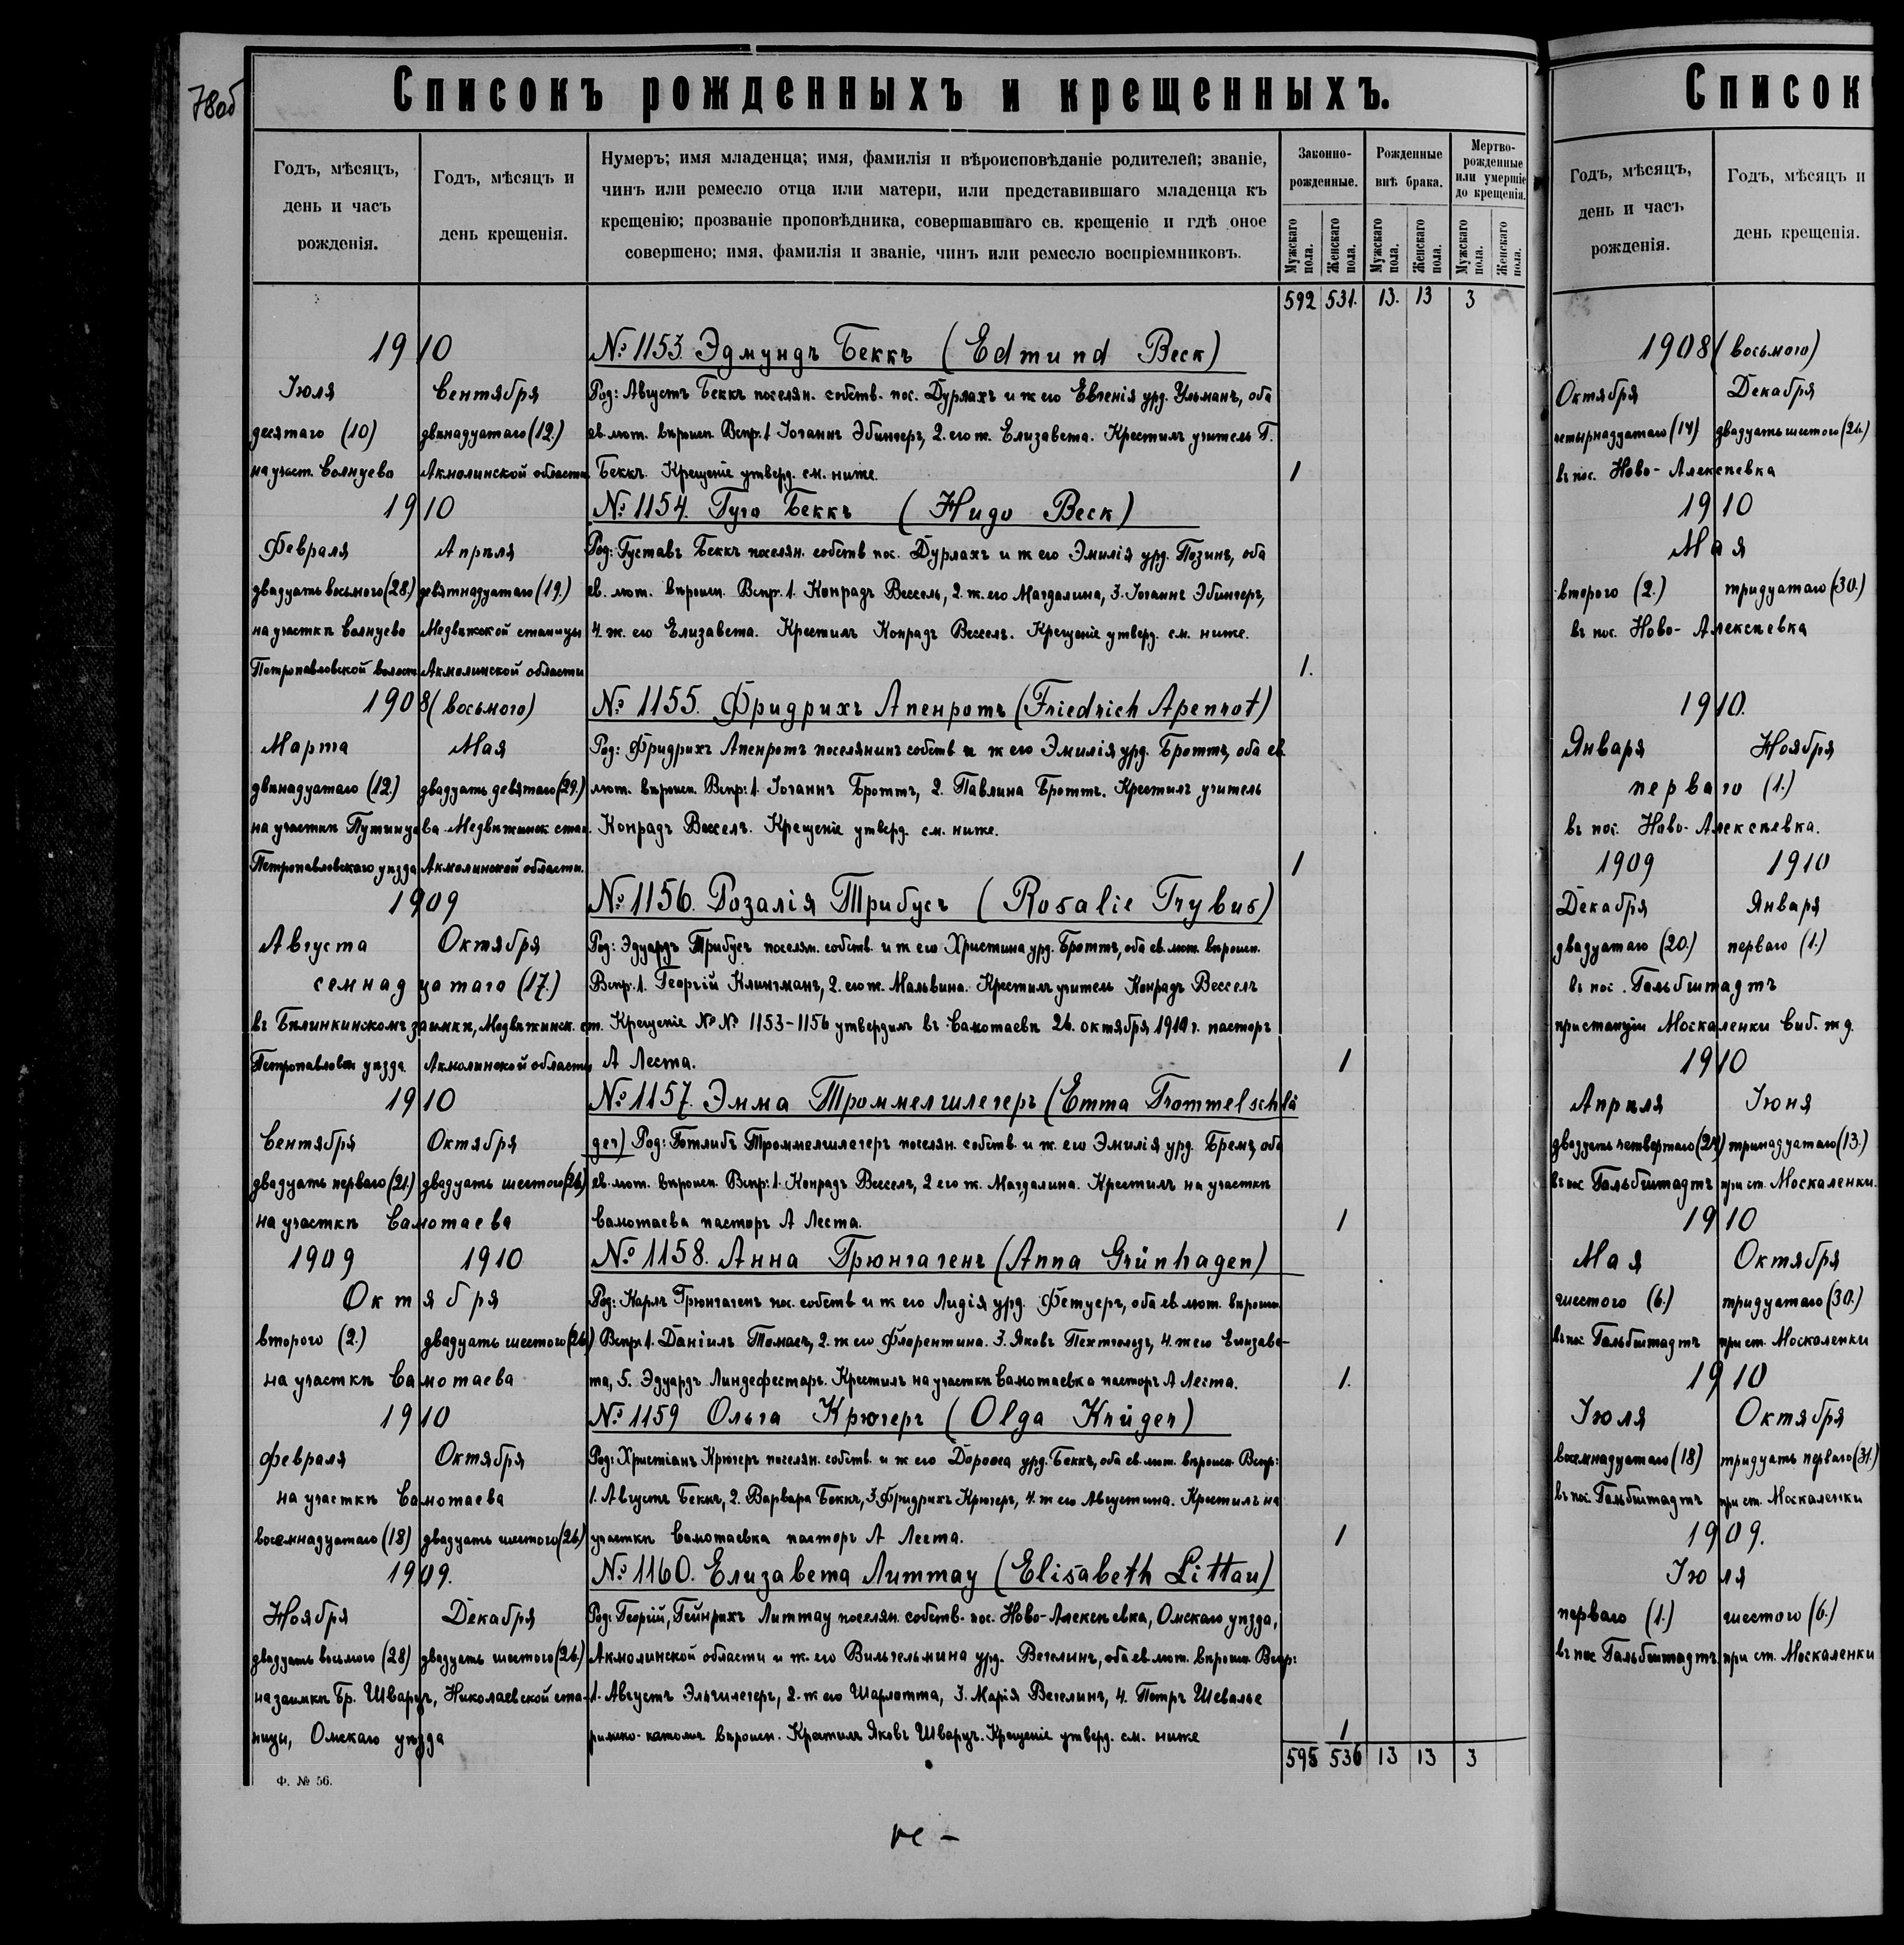 78об
Списокъ рожденныхъ и крещенныхъ.
Годъ, мѣсяцъ, день и часъ рожденія.
Годъ, мѣсяцъ и день крещенія.
Нумеръ; имя младенца; имя, фамилія и вѣроисповѣданіе родителей; званіе,
чинъ или ремесло отца или матери, или представившаго младенца къ
крещенію; прозваніе проповѣдника, совершавшаго св. крещеніе и гдѣ оное
совершено; имя, фамилія и званіе, чинъ или ремесло воспріемниковъ.
Законно-рожденные.
Рожденные внѣ брака.
Мертво-рожденные или умершіе до крещенія.
Мужскаго пола. Женскаго пола. Мужскаго пола. Женскаго пола. Мужскаго пола. Женскаго пола.
592 531. 13. 13 3
1910 № 1153. Эдмундъ Беккъ (Edmund Beck)
Іюля Сентября Род: Августъ Беккъ поселян. собств. пос. Дурлахъ и ж его Евгенія урд. Ульманъ, оба
десятаго (10) двѣнадцатаго (12.) ев. лют. вѣроисп. Вспр. 1 Іоганнъ Эбингеръ, 2. его ж. Елизавета. Крестилъ учитель Г.
на участ. Солнцево Акмолинской области Беккъ. Крещеніе утверд. см. ниже. 1
1910 № 1154. Гуго Беккъ (Hugo Beck)
Февраля Апрѣля Род: Густавъ Беккъ поселян. собств пос. Дурлахъ и ж его Эмилія урд. Позинъ, оба
двадцать восьмого (28.) девятнадцатаго (19.) ев. лют. вѣроисп. Вспр. 1. Конрадъ Вессель, 2. ж. его Магдалина, 3. Іоганнъ Эбингеръ,
на участкѣ Солнцево Медвѣжской станицы 4. ж. его Елизавета. Крестилъ Конрадъ Вессель. Крещеніе утверд. см. ниже.
Петропавловской волости Акмолинской области 1.
1908 (восьмого) № 1155. Фридрихъ Апенротъ (Friedrich Apenrot)
Марта Мая Род: Фридрихъ Апенротъ поселянинъ собств и ж его Эмилія урд. Броттъ, оба ев.
двѣнадцатаго (12.) двадцать девятаго (29.) лют. вѣроисп. Вспр: 1. Іоганнъ Броттъ, 2. Павлина Броттъ. Крестилъ учитель
на участкѣ Путинцева Медвѣжинск. стан. Конрадъ Вессель. Крещеніе утверд. см. ниже.
Петропавловскаго уѣзда Акмолинской области. 1
1909 № 1156. Розалія Трибусъ (Rosalie Trybus)
Августа Октября Род: Эдуардъ Трибусъ поселян. собств. и ж его Христина урд. Броттъ, оба ев. лют. вѣроисп.
семнадцатаго (17.) Вспр. 1. Георгій Клингманъ, 2. его ж. Мальвина. Крестилъ учитель Конрадъ Вессель
въ Бѣлинкинскомъ заимкѣ, Медвѣжинск. ст. Крещеніе №№ 1153-1156 утвердилъ въ Самотаевѣ 26. октября 1910 г. пасторъ
Петропавловск уѣзда Акмолинской области А Леста. 1
1910 № 1157. Эмма Троммелшлегеръ (Emma Trommelschlä
Сентября Октября ger) Род: Готлибъ Троммелшлегеръ поселян. собств. и ж. его Эмилія урд. Бремъ, оба
двадцать перваго (21.) двадцать шестого (26.) ев. лют. вѣроисп. Вспр: 1. Конрадъ Вессель, 2 его ж. Магдалина. Крестилъ на участкѣ
на участкѣ Самотаева Самотаева пасторъ А Леста. 1
1909 1910 № 1158. Анна Грюнгагенъ (Anna Grünhagen)
Октября Род: Карлъ Грюнгагенъ пос. собств и ж его Лидія урд. Фетцеръ, оба ев. лют. вѣроисп.
второго (2.) двадцать шестого (26.) Вспр. 1. Даніилъ Томасъ, 2. ж его Флорентина. 3. Яковъ Пехтгольдъ, 4. ж его Елизаве-
на участкѣ Самотаева та, 5. Эдуардъ Линдефестаръ. Крестилъ на участкѣ Самотаевка пасторъ А Леста. 1.
1910 № 1159 Ольга Крюгеръ (Olga Krüger)
Февраля Октября Род: Христіанъ Крюгеръ поселян. собств. и ж его Доротеа урд. Беккъ, оба ев. лют. вѣроисп. Вспр:
на участкѣ Самотаева 1. Августъ Беккъ, 2. Варвара Беккъ, 3. Фридрихъ Крюгеръ, 4. ж его Августина. Крестилъ на
восемнадцатаго (18) двадцать шестого (26.) участкѣ Самотаевка пасторъ А Леста. 1
1909. № 1160. Елизавета Литтау (Elisabeth Littau)
Ноября Декабря Род: Георгій, Гейнрихъ Литтау поселян. собств. пос. Ново-Алексѣевка, Омскаго уѣзда,
двадцать восьмого (28) двадцать шестого (26.) Акмолинской области и ж. его Вильгельмина урд. Вегелинъ, оба ев. лют. вѣроисп. Вспр:
на заимкѣ Бр. Шварцъ, Николаевской ста- 1. Августъ Эльгилегеръ, 2. ж его Шарлотта, 3. Марія Вегелинъ, 4. Петръ Шевалье
ницы, Омскаго уѣзда римско-католич вѣроисп. Крестилъ Яковъ Шварцъ. Крещеніе утверд. см. ниже 1
595 536 13 13 3
Ф. № 56.
Список
Годъ, мѣсяцъ, день и часъ рожденія.
Годъ, мѣсяцъ и день крещенія.
1908 (восьмого)
Октября Декабря
четырнадцатаго (14) двадцать шестого (26.)
въ пос. Ново-Алексѣевка
1910
Мая
второго (2.) тридцатаго (30.)
въ пос. Ново-Алексѣевка
1910.
Января Ноября
перваго (1.)
въ пос. Ново-Алексѣевка.
1909 1910
Декабря Января
двадцатаго (20.) перваго (1.)
въ пос. Гальбштадтъ
при станціи Москаленки Сиб. ж д.
1910
Апрѣля Іюня
двадцать четвертаго (24) тринадцатаго (13.)
въ пос Гальбштадтъ при ст. Москаленки.
1910
Мая Октября
шестого (6.) тридцатаго (30.)
въ пос Гальбштадтъ при ст. Москаленки
1910
Іюля Октября
восемнадцатаго (18) тридцать перваго (31.)
въ пос. Гальбштадтъ при ст. Москаленки
1909.
Іюля
перваго (1.) шестого (6.)
въ пос Гальбштадтъ при ст. Москаленки